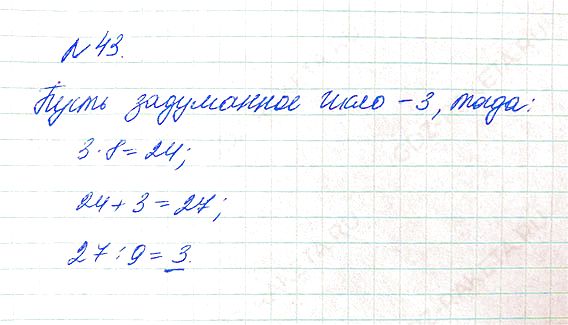 № 43.
Пусть задуманное число – 3, тогда:
3 · 8 = 24;
24 + 3 = 27;
27 : 9 = 3.